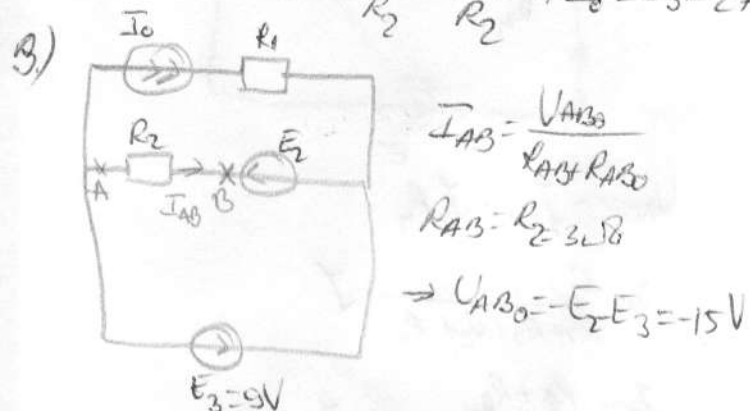 R2 R2
3.)
I0 R1
R2 E2
A IAB B
E3=9V
IAB = UAB0 / RAB+RAB0
RAB = R2 = 3Ω
→ UAB0 = -E2-E3 = -15V